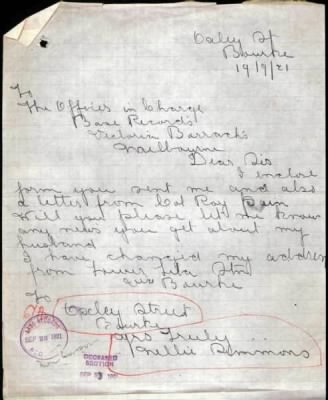 Oxley St
Bourke
19/9/21
To
The Officer in Charge
Base Records
Victoria Barracks
Melbourne
Dear Sir
I enclose
form you sent me and also
a letter from Col Roy
Will you please let me know
any news you get about my
husband
I have changed my address
from Lower Lila Stn
Bourke
To
Oxley Street
Bourke
yrs Truly
Nellie Simmons
BASE RECORDS
SEP 1921
DECEASED
SECTION
SEP 1921